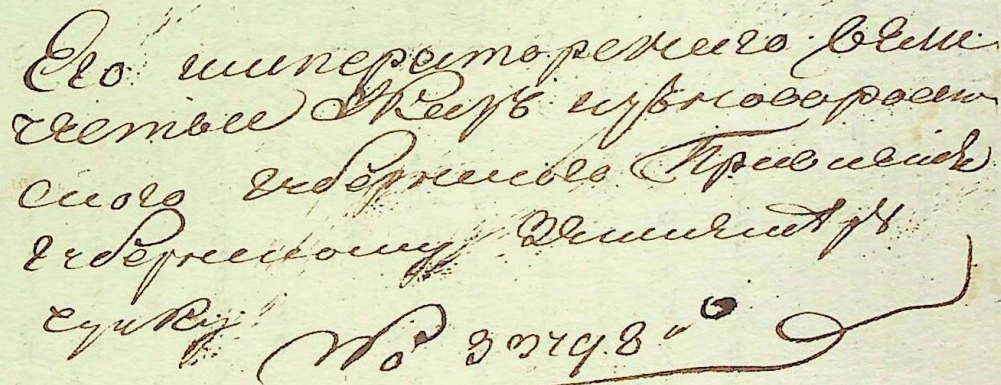 Его императорскаго вели
чества Указъ изъновороссий
ского губернского Правления
губернскому Землемѣру
чуйку
№ 33498